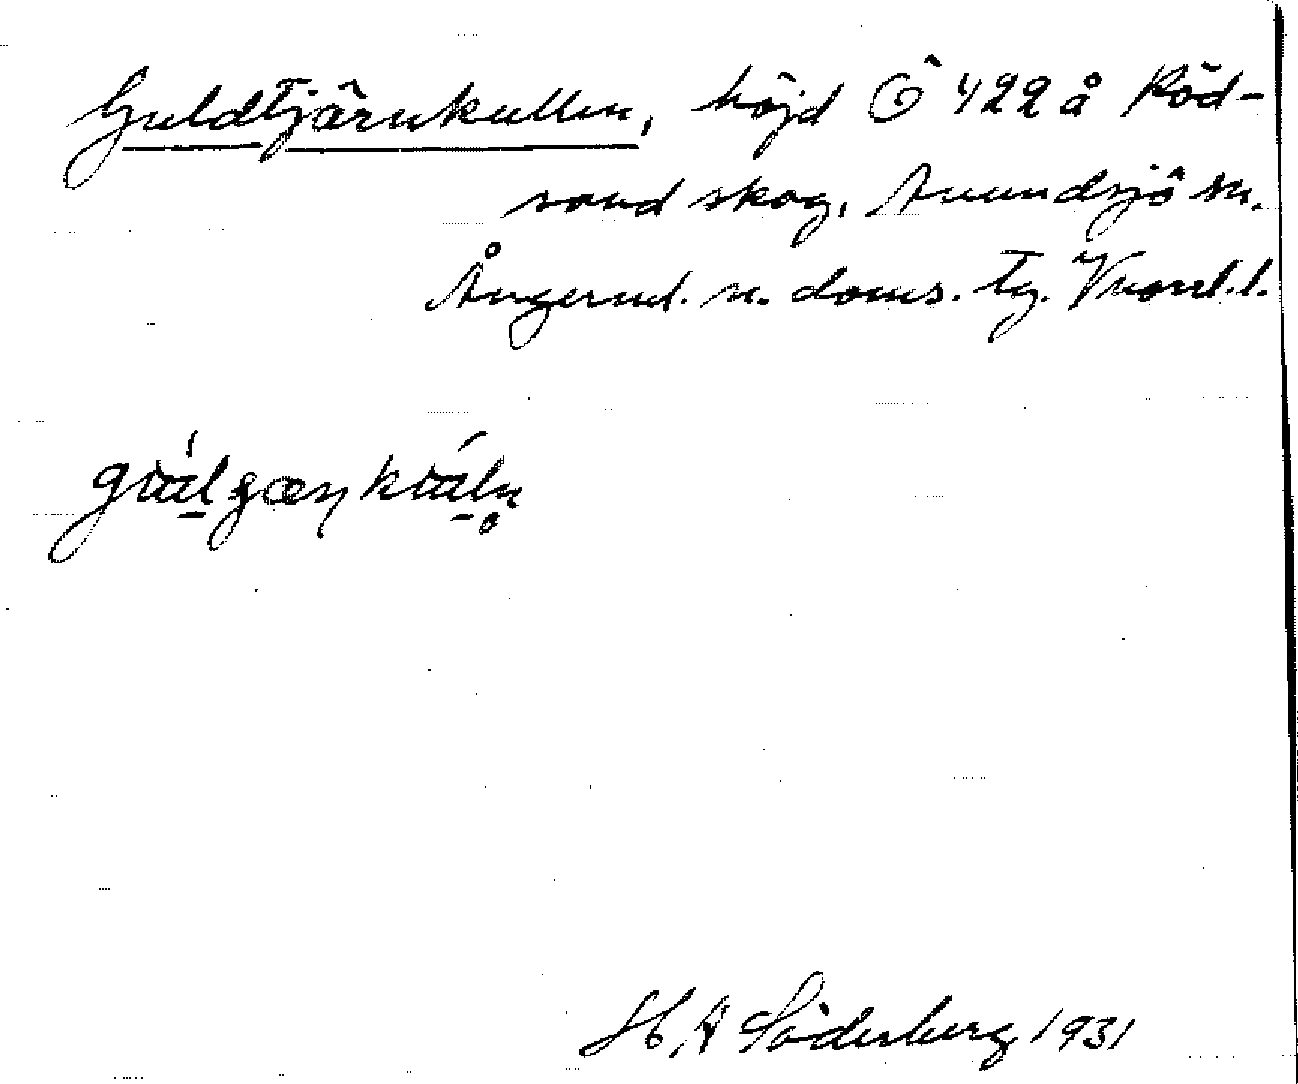 Guldtjärnkullen, höjd Ö 422 å Röd-
sand skog, Anundsjö sn.
Ångerml. n. doms. tg. Vnorrl. l.
H A Söderberg 1931